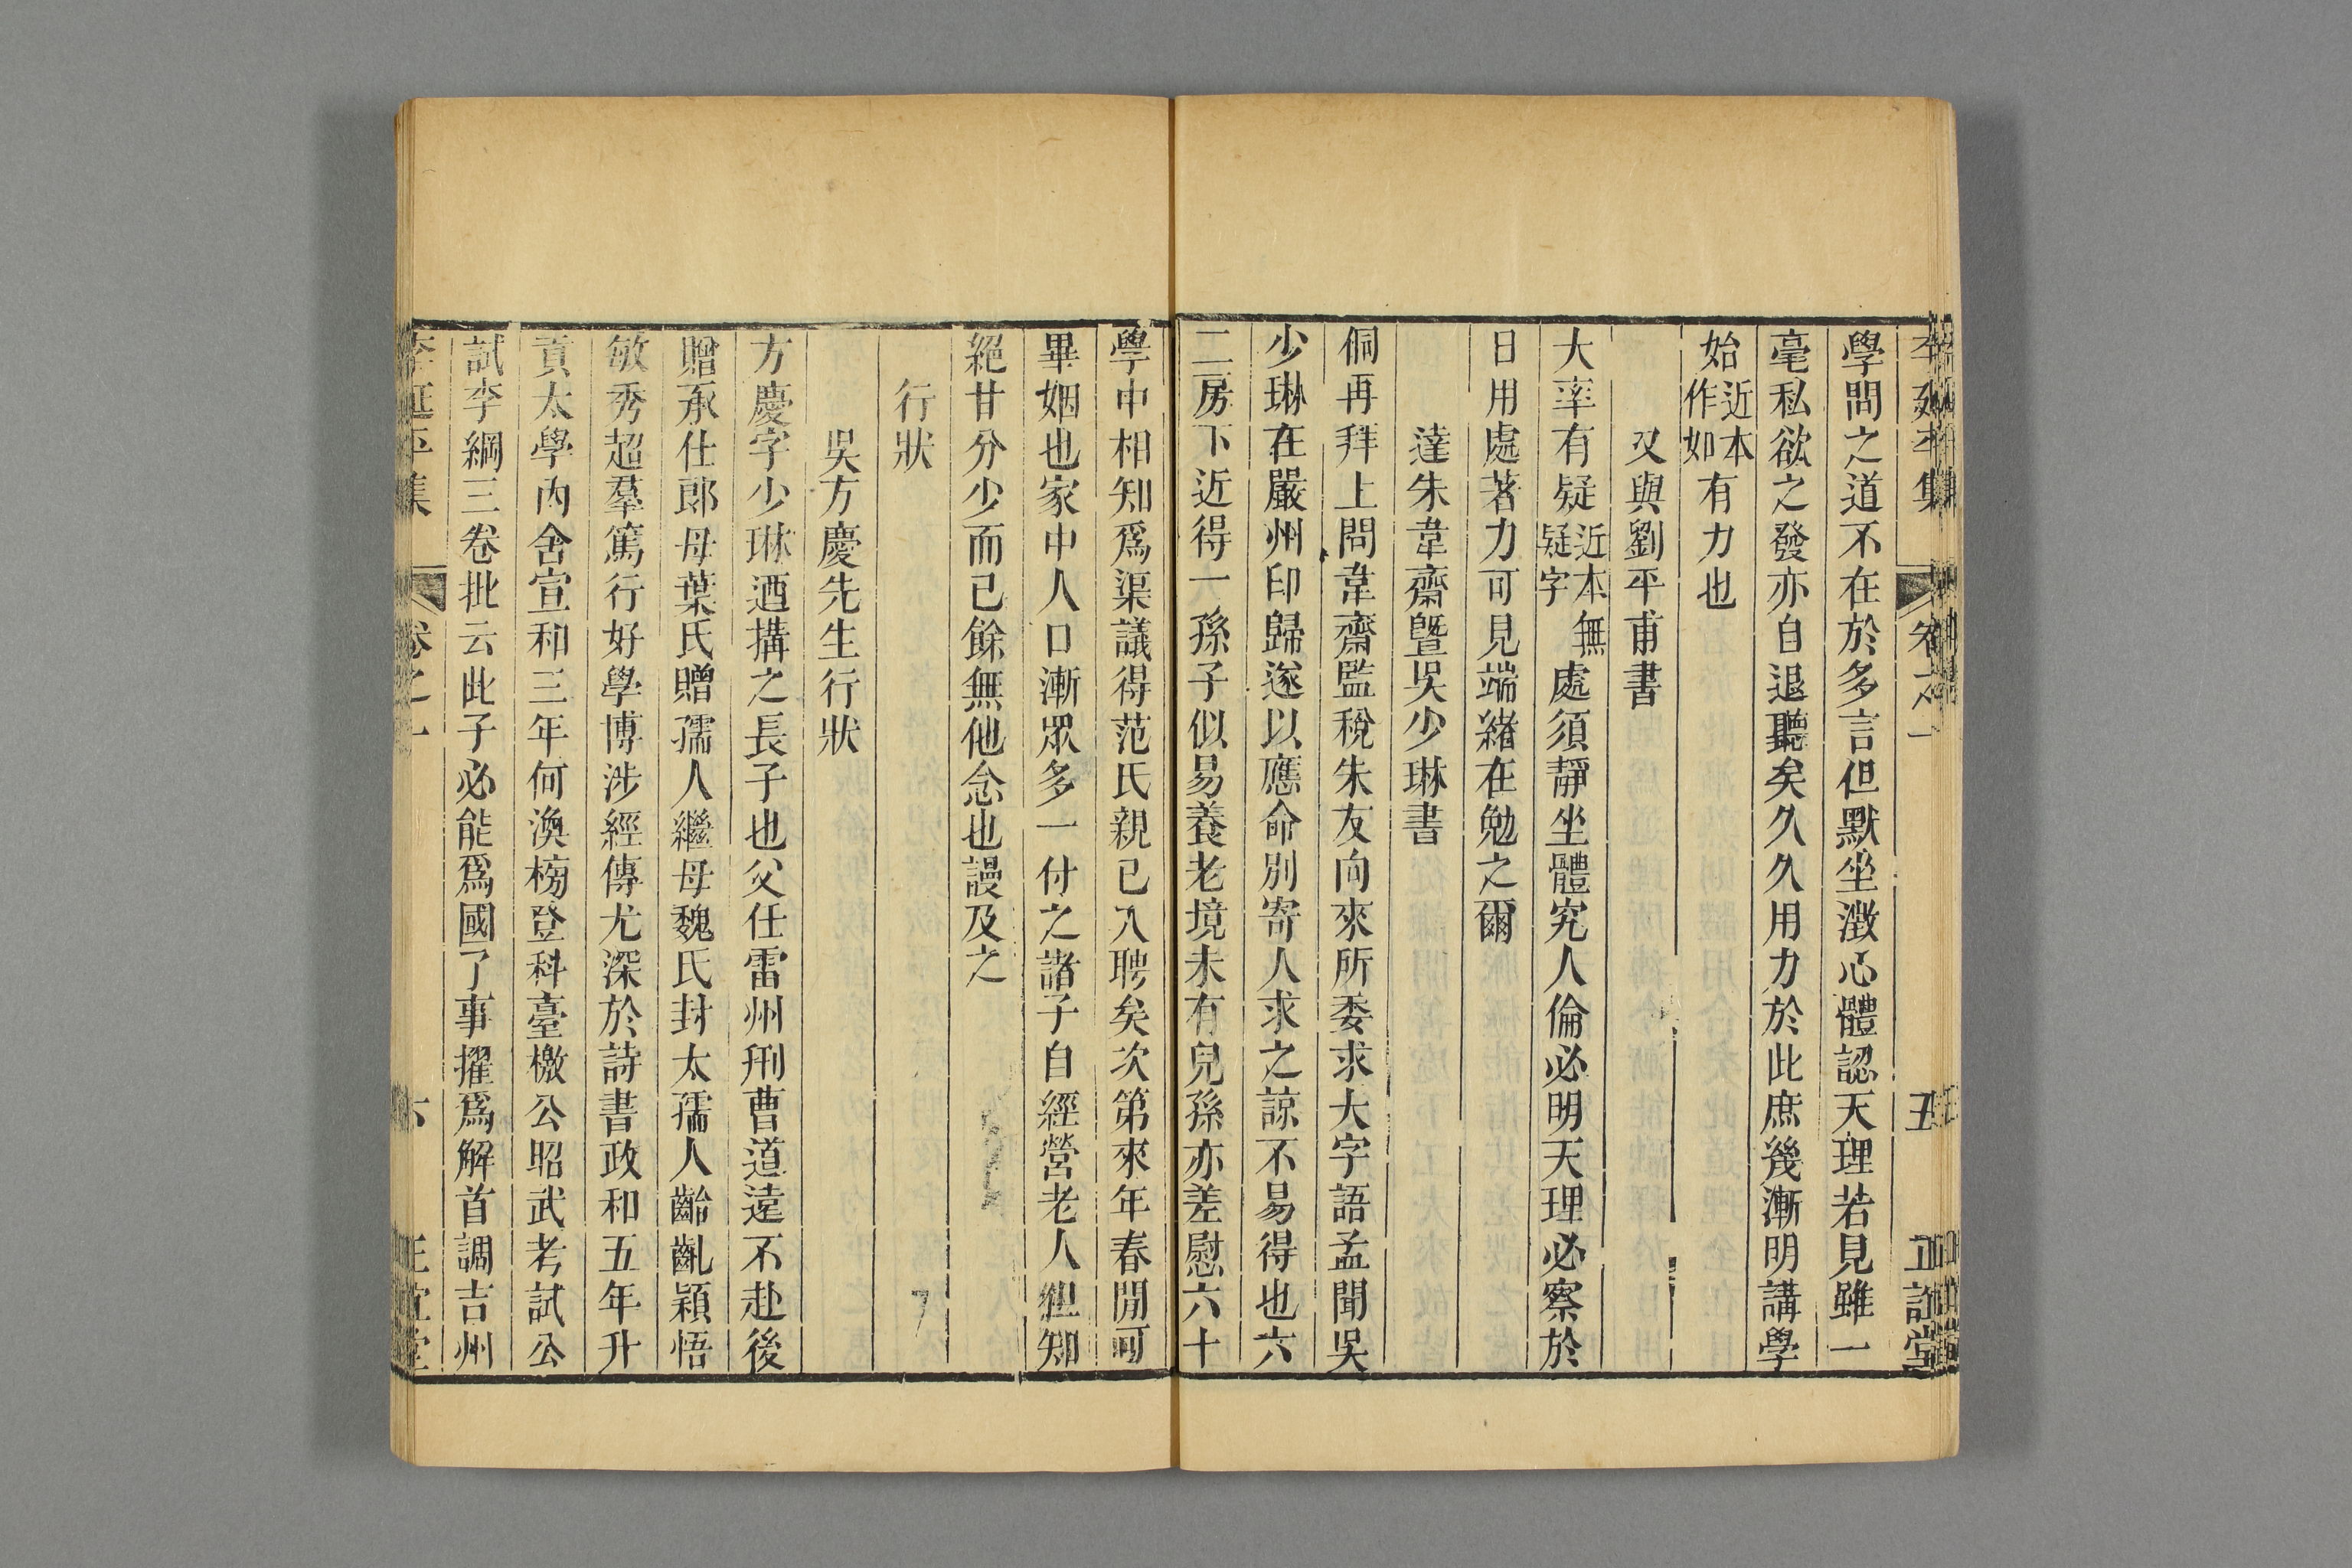 學問之道不在於多言但默坐澂心體認天理若見雖一
毫私欲之發亦自退聽矣久久用力於此庶幾漸明講學
始近本作如有力也
又與劉平甫書
大率有疑近本無疑字處須靜坐體究人倫必明天理必察於
日用處著力可見端緒在勉之爾
達朱韋齋曁吳少琳書
侗再拜上問韋齋監稅朱友向來所委求大字語孟聞吳
少琳在嚴州印歸遂以應命別寄人求之諒不易得也六
二房下近得一孫子似易養老境未有兒孫亦差慰六十
學中相知爲渠議得范氏親已入聘矣次第來年春閒可
畢姻也家中人口漸眾多一付之諸子自經營老人但知
絕甘分少而已餘無他念也謾及之
行狀
吳方慶先生行狀
方慶字少琳迺搆之長子也父任雷州刑曹道遠不赴後
贈承仕郎母葉氏贈孺人繼母魏氏封太孺人齠齔穎悟
敏秀超羣篤行好學博涉經傳尤深於詩書政和五年升
貢太學內舍宣和三年何渙榜登科臺檄公昭武考試公
試李綱三卷批云此子必能爲國了事擢爲解首調吉州
李延平集 卷之一 六 正誼堂